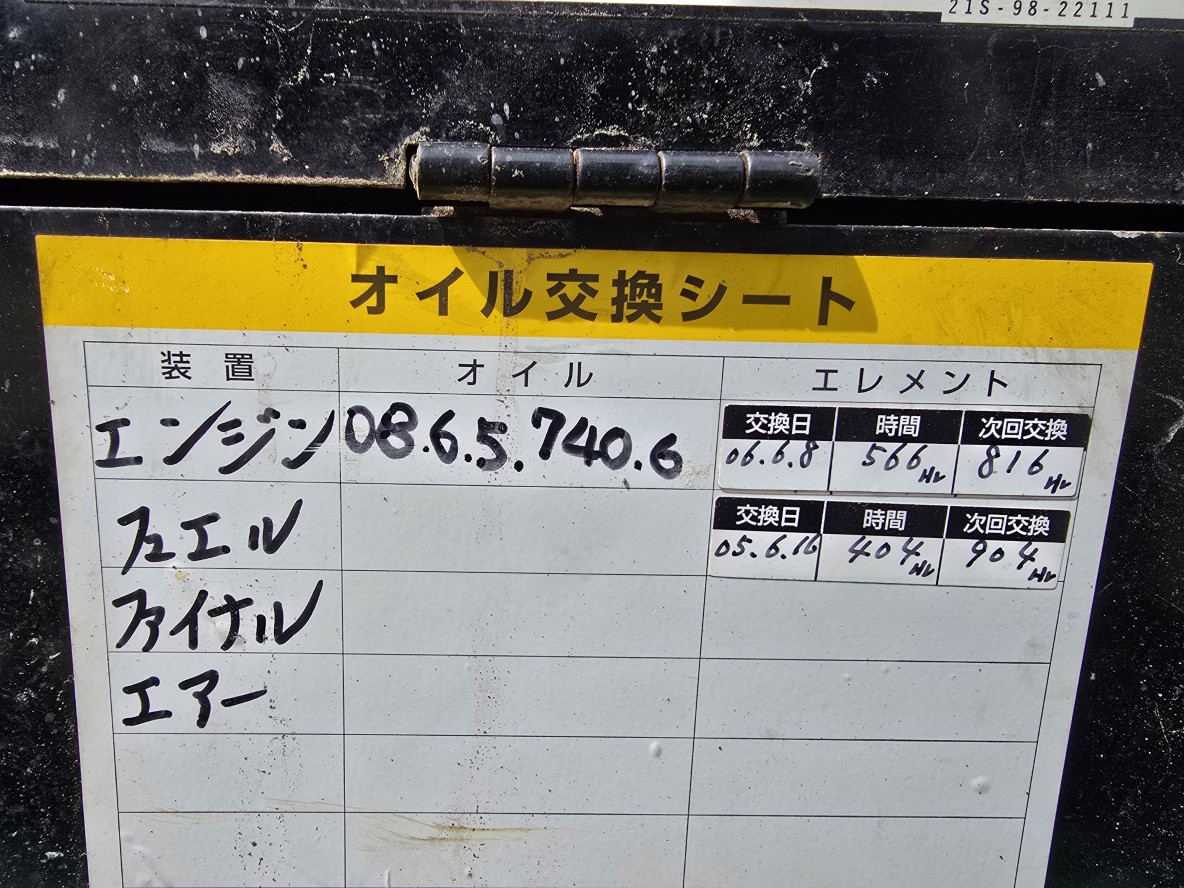 21S-98-22111
オイル交換シート
装置 オイル エレメント
エンジン 08.6.5. 740.6
交換日 時間 次回交換
06.6.8 566Hr 816Hr
フェエル
交換日 時間 次回交換
05.6.16 404Hr 904Hr
ファイナル
エアー